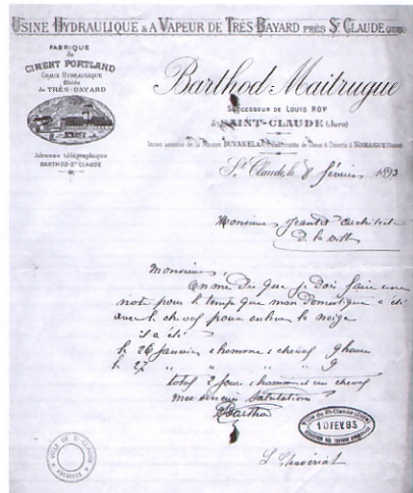 USINE HYDRAULIQUE & A VAPEUR DE TRÈS-BAYARD PRÈS ST CLAUDE (JURA)
FABRIQUE
de
CIMENT PORTLAND
CHAUX HYDRAULIQUE
Blutée
de TRÈS-BAYARD
Adresse télégraphique
BARTHOD-ST CLAUDE
Barthod-Maitrugue
SUCCESSEUR DE LOUIS ROY
à SAINT-CLAUDE (Jura)
Ancien associé de la Maison DUVANEL & Cie Fabricants de Chaux & Ciments à NOIRAIGUE (Suisse)
St Claude le 8 février 1893
Monsieur Architecte
de la ville
Monsieur,
On me dit que je dois faire une
note pour le temps que mon domestique a été
avec le cheval pour enlever la neige
il a été
le 26 Janvier 1 homme 1 cheval 9 heures
le 27 " " " " 9
total 2 jours 1 homme et un cheval
mes sincères Salutations
Barthod
VILLE DE ST-CLAUDE (JURA)
10 FEV. 93
VILLE DE ST CLAUDE
ARCHIVES